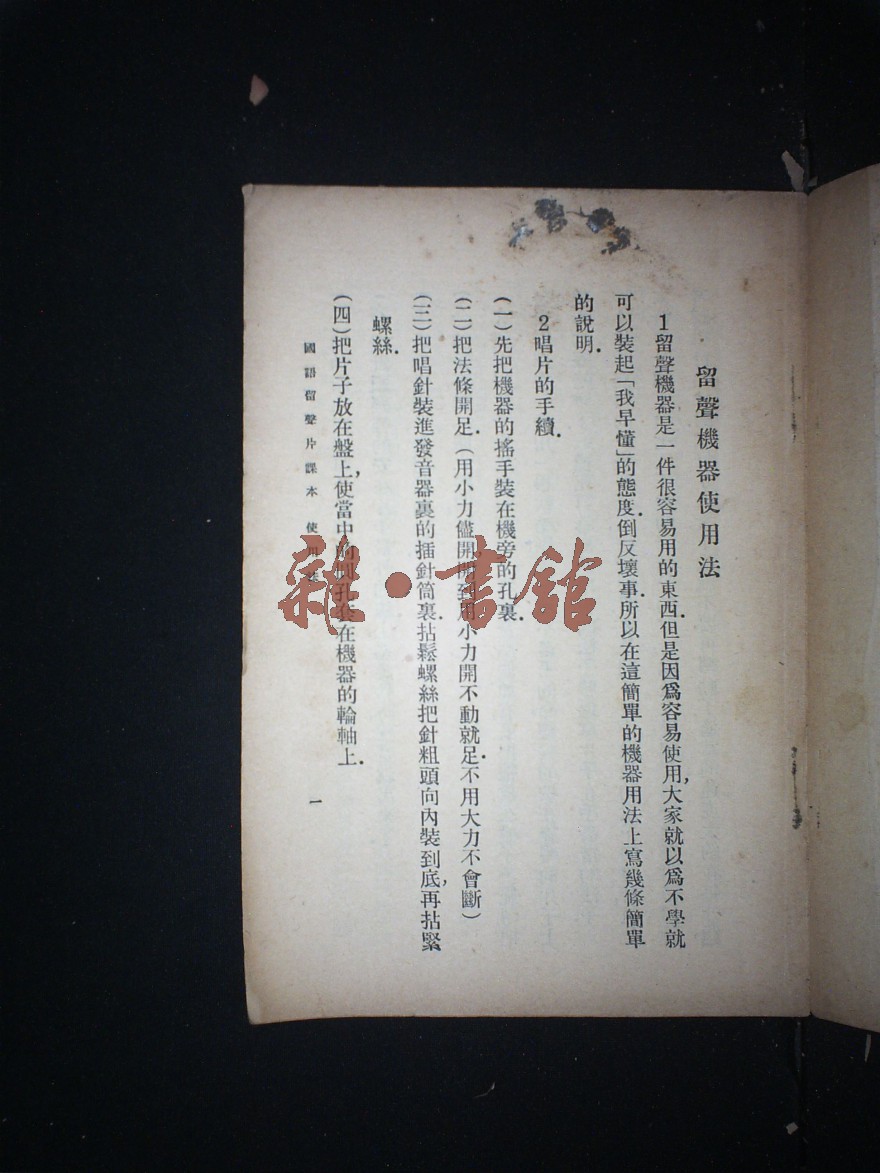 留聲機器使用法
1留聲機器是一件很容易用的東西.但是因爲容易使用,大家就以爲不學就
可以裝起「我早懂」的態度.倒反壞事.所以在這簡單的機器用法上寫幾條簡單
的說明.
2唱片的手續.
(一)先把機器的搖手裝在機旁的孔裏.
(二)把法條開足.(用小力儘開.開到用小力開不動就足.不用大力不會斷)
(三)把唱針裝進發音器裏的插針筒裏.拈鬆螺絲把針粗頭向內裝到底,再拈緊
螺絲.
(四)把片子放在盤上,使當中的圓孔套在機器的輪軸上.
國語留聲片課本 使用法 一
雜·書館